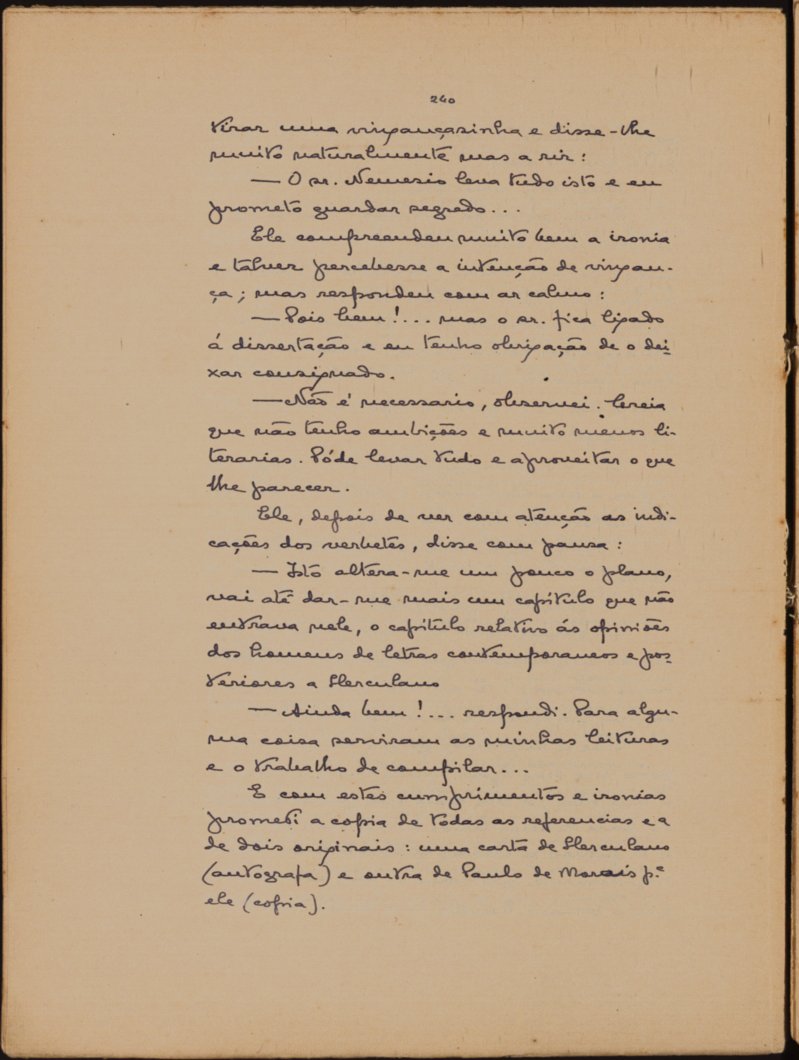 240
tirar uma vingançasinha e disse-lhe
muito naturalmente mas a rir:
— O sr. Nemesio leva tudo isto e eu
prometo guardar segredo...
Ele compreendeu muito bem a ironia
e talvez percebesse a intenção de vingan-
ça; mas respondeu com ar calmo:
— Pois bem!... mas o sr. fica ligado
á dissertação e eu tenho obrigação de o dei-
xar consignado.
— Não é necessario, observei. Creia
que não tenho ambições e muito menos li-
terarias. Póde levar tudo e aproveitar o que
lhe parecer.
Ele, depois de ver com atenção as indi-
cações dos verbetes, disse com pausa:
— Isto altera-me um pouco o plano,
vai até dar-me mais um capítulo que não
entrava nele, o capítulo relativo ás opiniões
dos homens de letras contemporaneos e pos-
teriores a Herculano
— Ainda bem!... respondi. Para algu-
ma coisa serviram as minhas leituras
e o trabalho de compilar...
E com estes cumprimentos e ironias
prometi a copia de todas as referencias e a
de dois originais: uma carta de Herculano
(autografa) e outra de Paulo de Morais p.ª
ele (copia).